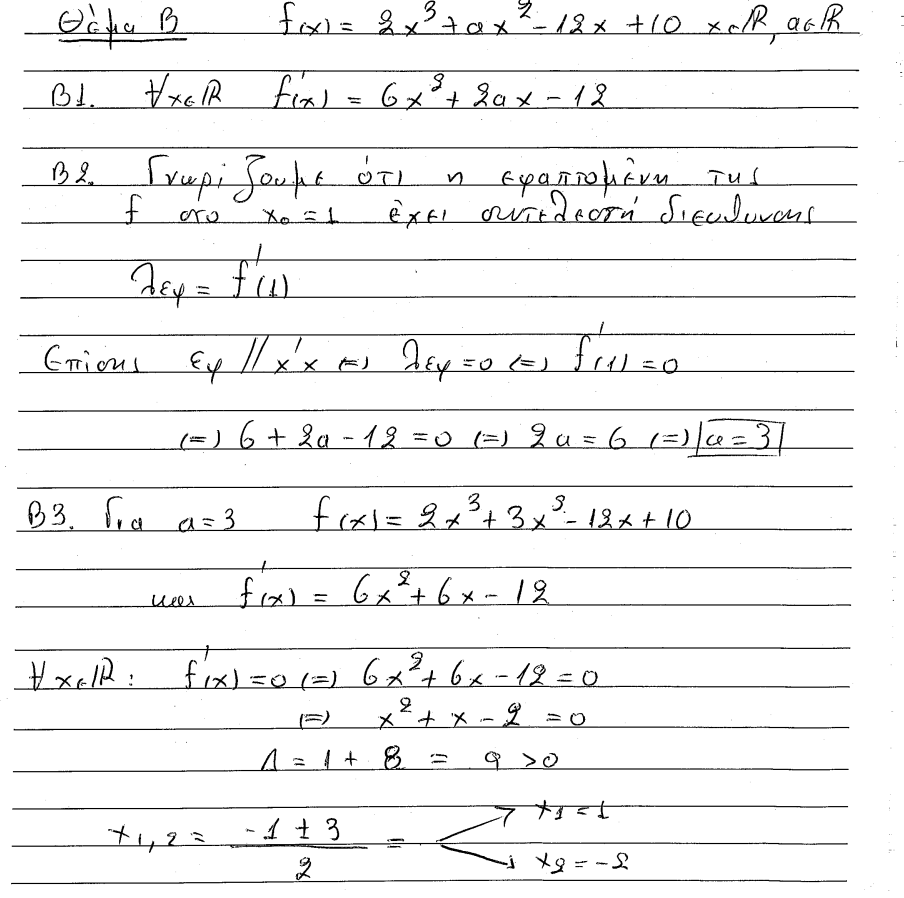 Θέμα Β f(x) = 2x³ + αx² - 12x + 10 x∈ℝ, α∈ℝ
Β1. ∀x∈ℝ f'(x) = 6x² + 2αx - 12
Β2. Γνωρίζουμε ότι η εφαπτομένη της
f στο x₀ = 1 έχει συντελεστή διεύθυνσης
λεφ = f'(1)
Επίσης εφ // x'x (=) λεφ = 0 (=) f'(1) = 0
(=) 6 + 2α - 12 = 0 (=) 2α = 6 (=) α = 3
Β3. Για α = 3 f(x) = 2x³ + 3x² - 12x + 10
και f'(x) = 6x² + 6x - 12
∀x∈ℝ: f'(x) = 0 (=) 6x² + 6x - 12 = 0
(=) x² + x - 2 = 0
Δ = 1 + 8 = 9 > 0
x₁,₂ = (-1 ± 3)/2 = → x₁ = 1
→ x₂ = -2